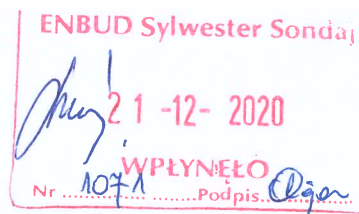 ENBUD Sylwester Sondaj
21 -12- 2020
WPŁYNĘŁO
Nr ..... 1071 ..... Podpis.....